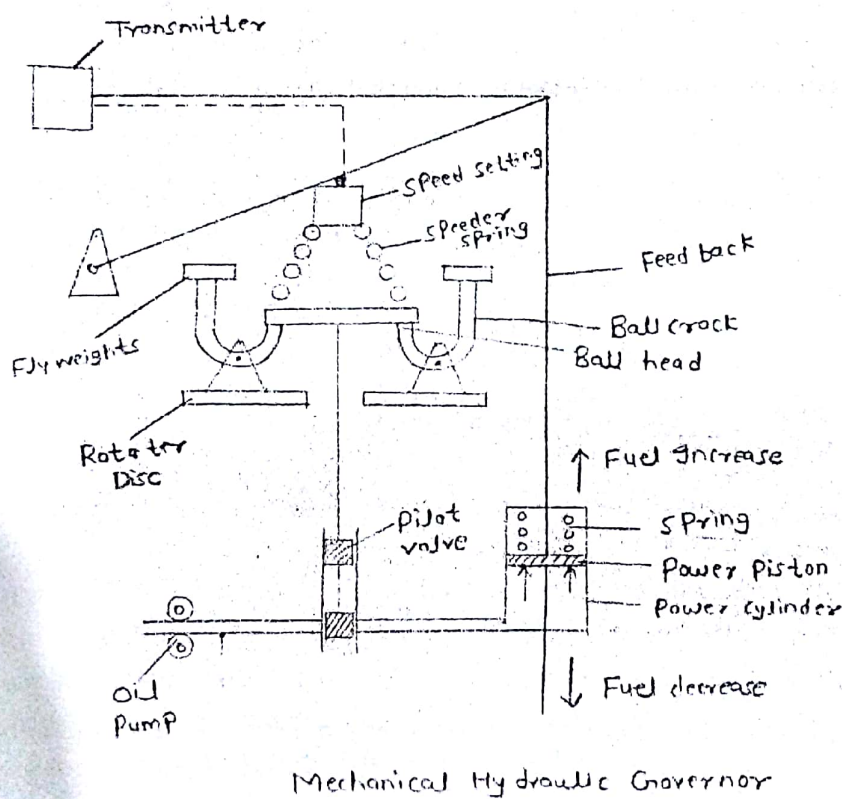 Transmitter
Speed setting
Speeder
spring
Feed back
Ball crock
Ball head
Fly weights
Rotater
Disc
Fuel Increase
Pilot
valve
Spring
Power Piston
Power cylinder
Oil
Pump
Fuel decrease
Mechanical Hydraulic Governor